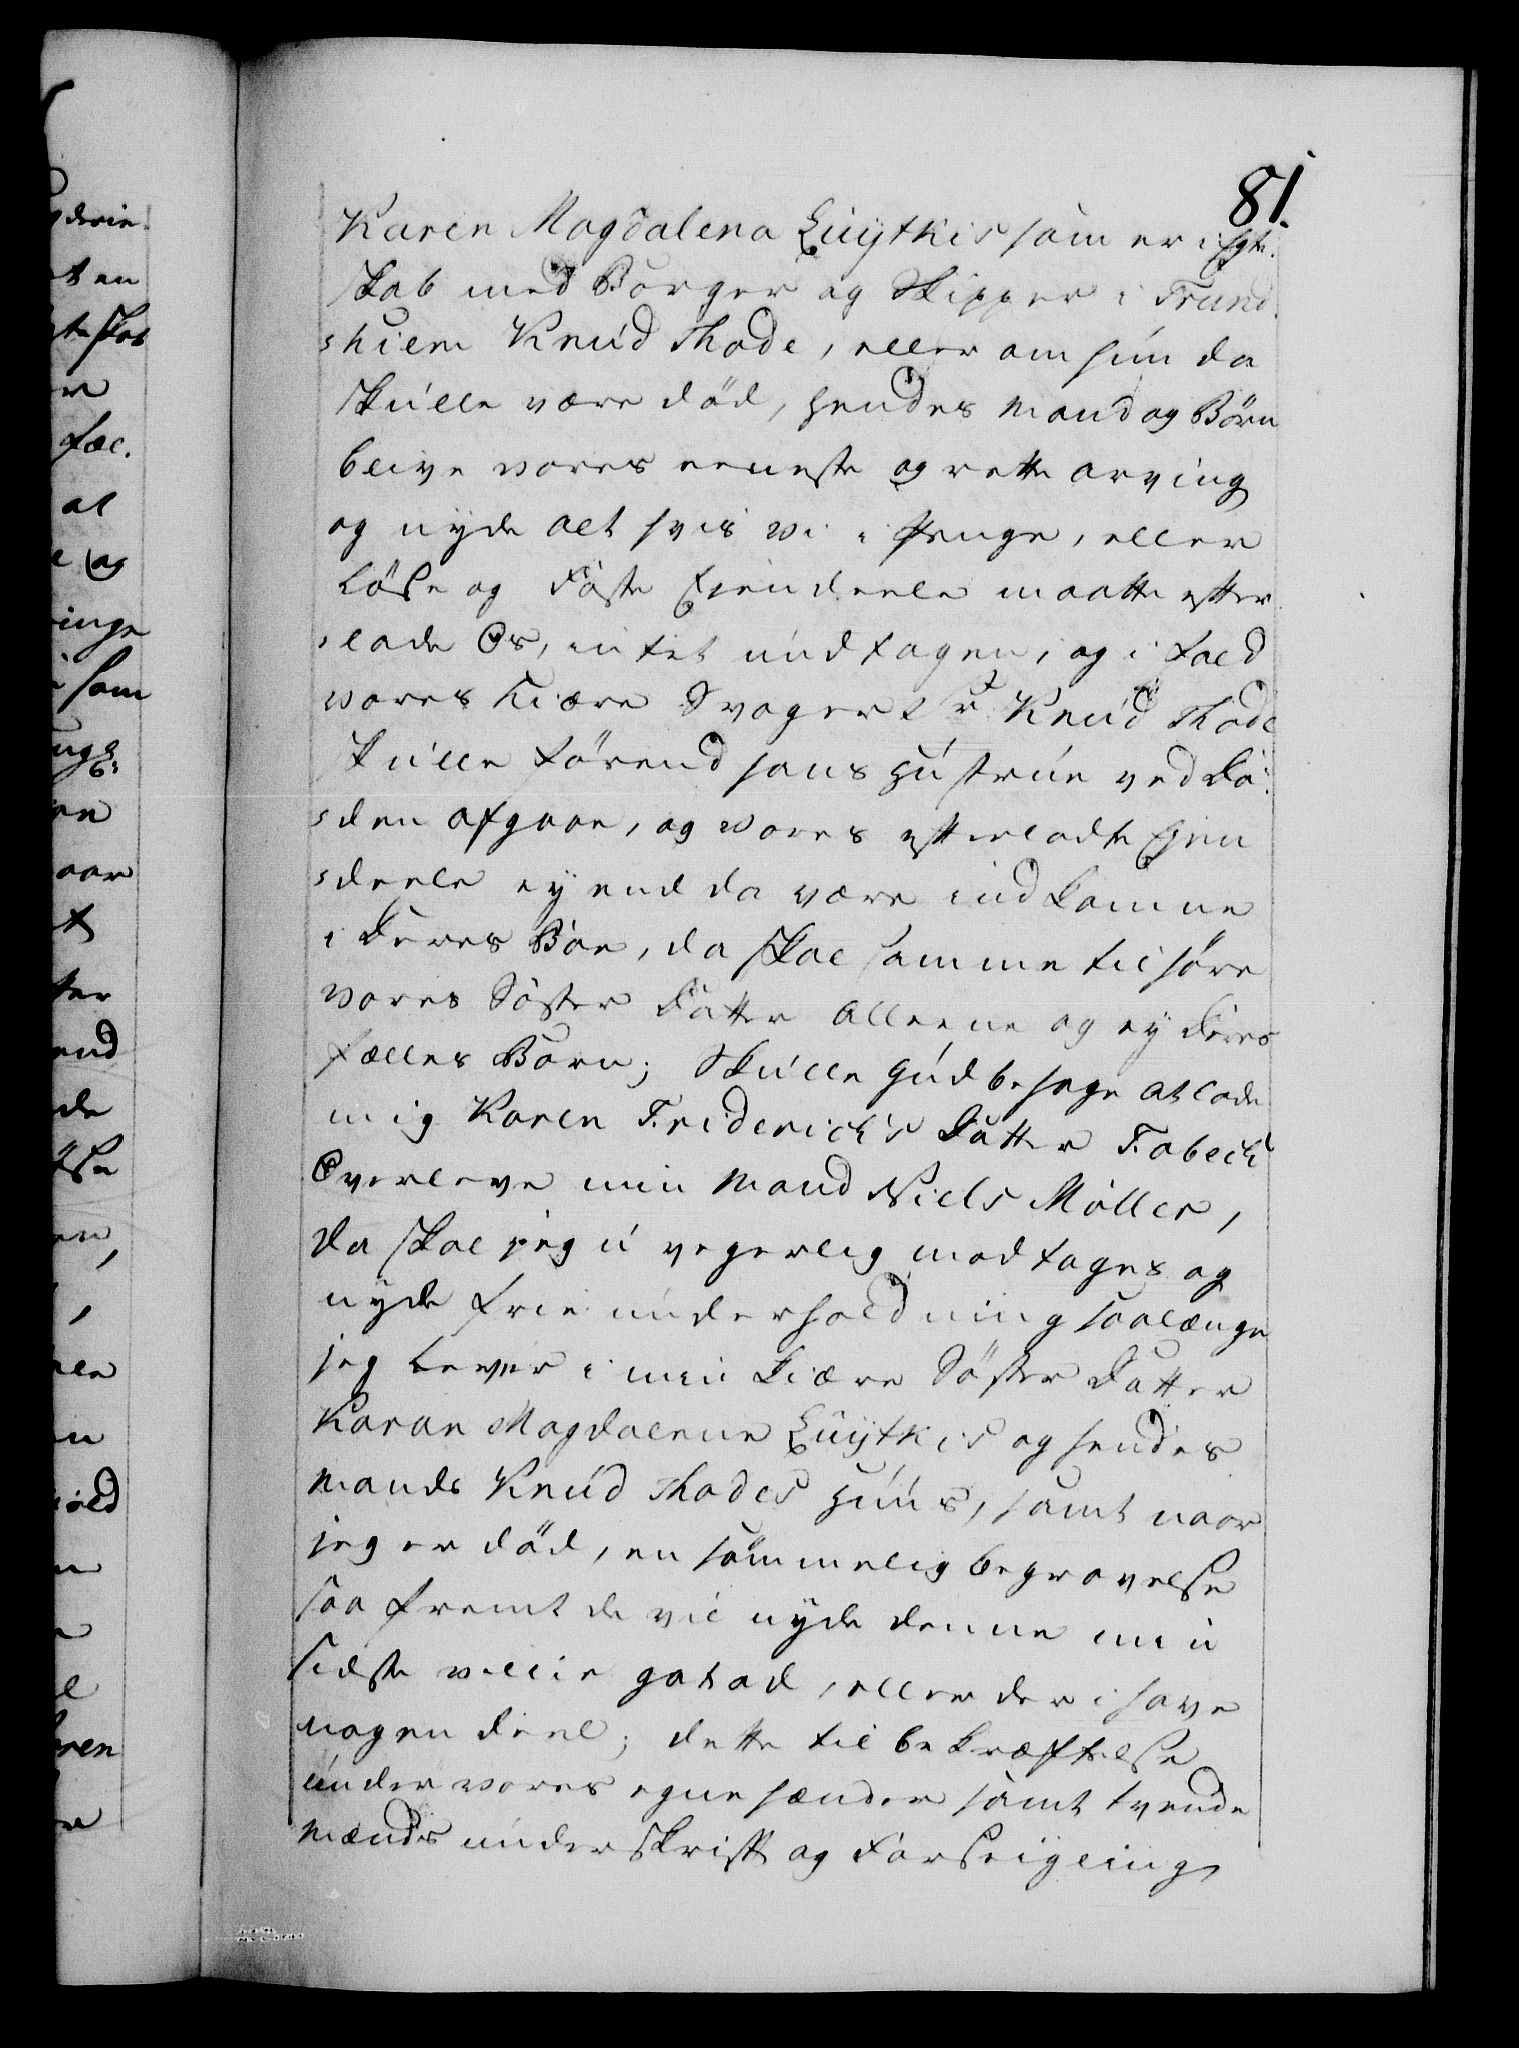 81.
Karen Magdalena Luÿtkis som er i Egte-
skab med Borger og Skipper i Trund-
hiem Knud Thode, eller om hun da
skulle være död, hendes Mand og Börn
blive vores eeneste og rette arving
og nyde alt hvis vi i Penge, eller
Löse og Faste Ejendeele maatte efter
lade Os, intet undtagen, og i fald
vores kiære Svoger Sr Knud Thode
skulle förend hans Hustrue ved Dö-
den afgaae, og vores efterladte Ejen
deele ey end da være indkomne
i Deres Boe, da skal samme tilhöre
vores Söster Datter alleene og ey deres
fælles Börn; Skulle Gud behage at lade
mig Karen Friderich's Datter Fabech
Overleve min Mand Niels Möller,
da skal jeg uvegerlig modtages og
nyde frie underholdning saalænge
jeg Lever i min kiære Söster Datter
Karen Magdalene Luÿtkis og hendes
Mands Knud Thodes Huus, samt naar
jeg er död, en sömmelig begravelse
saa fremt de vil nyde denne min
sidste villie gotad, eller der i have
nogen deel; dette til bekræftelse
under vores egne hænder samt tvende
Mænds underskrift og Forseigling,
gteskab
at en
og
som